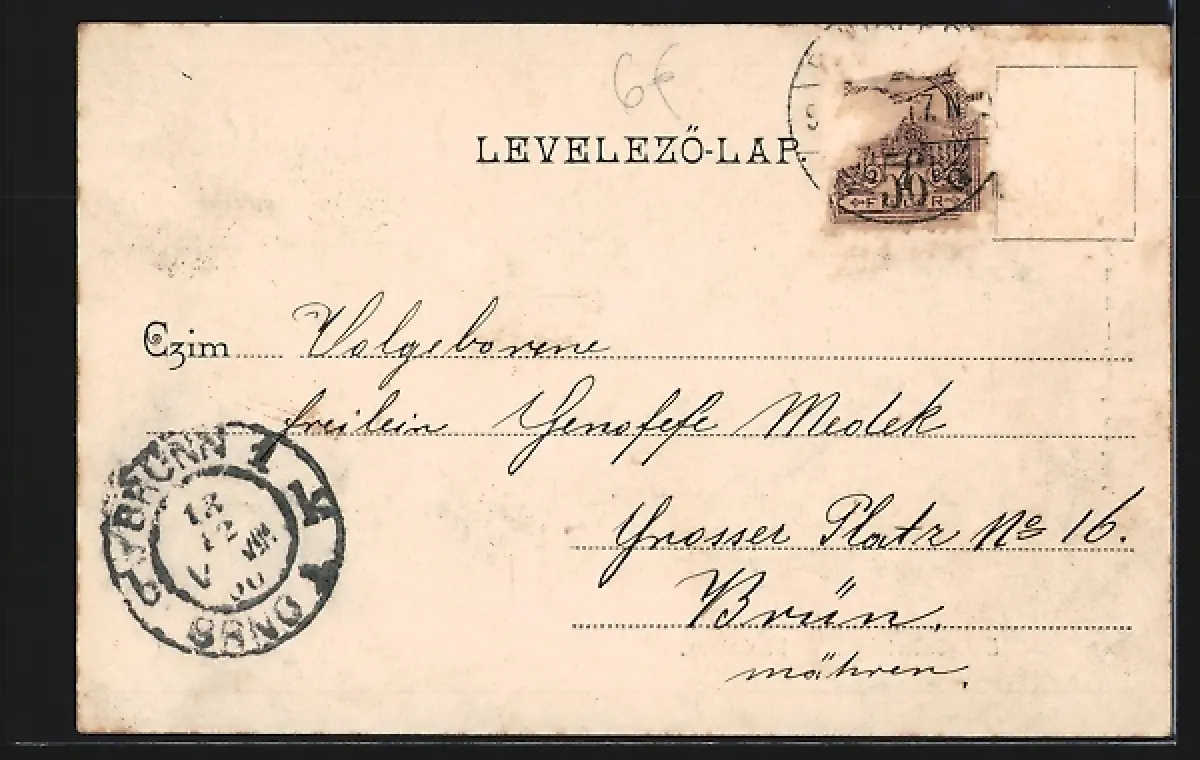 6€
LEVELEZŐ-LAP.
7. N
FILLÉR
Czim Volgeborene
freilein Genofefe Medek
Grosser Platz No 16.
Brün,
mähren.
BRÜNN 1
BRNO